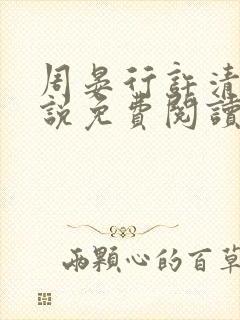 周晏行許清
說免費閱讀
兩顆心的百草